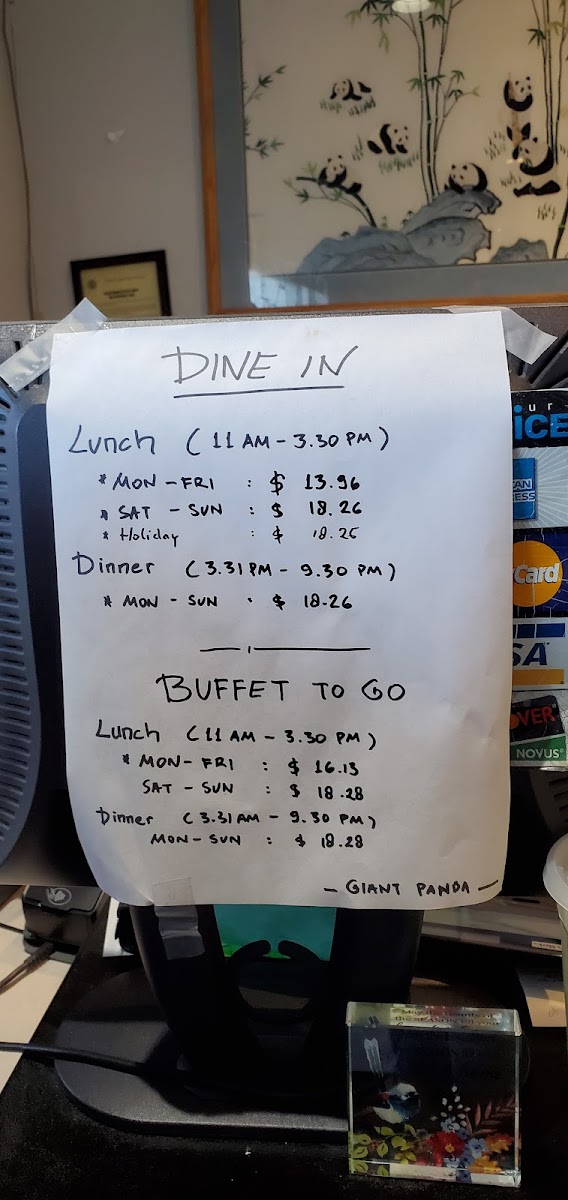 DINE IN
Lunch (11 AM - 3.30 PM)
* MON - FRI : $ 13.96
* SAT - SUN : $ 18.26
* Holiday : $ 18.26
Dinner (3.31 PM - 9.30 PM)
* MON - SUN : $ 18.26
BUFFET TO GO
Lunch (11 AM - 3.30 PM)
* MON - FRI : $ 16.13
SAT - SUN : $ 18.28
Dinner (3.31 AM - 9.30 PM)
MON - SUN : $ 18.28
- GIANT PANDA -
ur
ICE
CAN
ESS
Card
SA
OVER
NOVUS